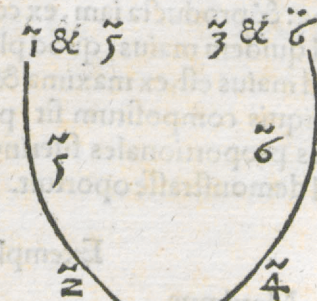 1̃ & 5̃ 3̃ & 6̃
5̃ 6̃
2̃ 4̃